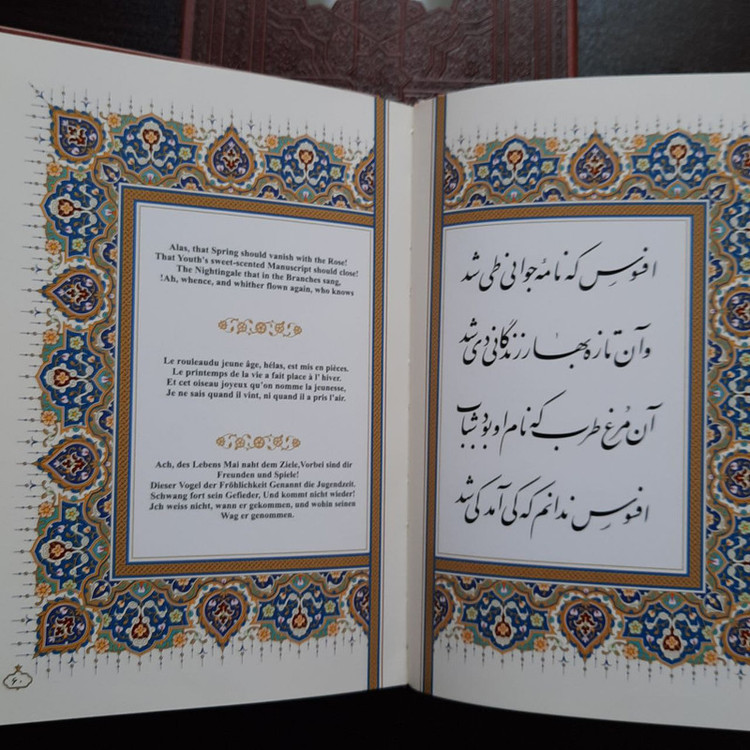 Alas, that Spring should vanish with the Rose!
That Youth's sweet-scented Manuscript should close!
The Nightingale that in the Branches sang,
!Ah, whence, and whither flown again, who knows
Le rouleaudu jeune âge, hélas, est mis en pièces.
Le printemps de la vie a fait place à l' hiver.
Et cet oiseau joyeux qu'on nomme la jeunesse,
Je ne sais quand il vint, ni quand il a pris l'air.
Ach, des Lebens Mai naht dem Ziele,Vorbei sind dir
Freunden und Spiele!
Dieser Vogel der Fröhlichkeit Genannt die Jugendzeit.
Schwang fort sein Gefieder, Und kommt nicht wieder!
Jch weiss nicht, wann er gekommen, und wohin seinen
Wag er genommen.
۶۰
افسوس که نامهٔ جوانی طی شد
وآن تازه بهار زندگانی دی شد
آن مُرغ طرب که نام او بود شباب
افسوس ندانم که کی آمد کی شد